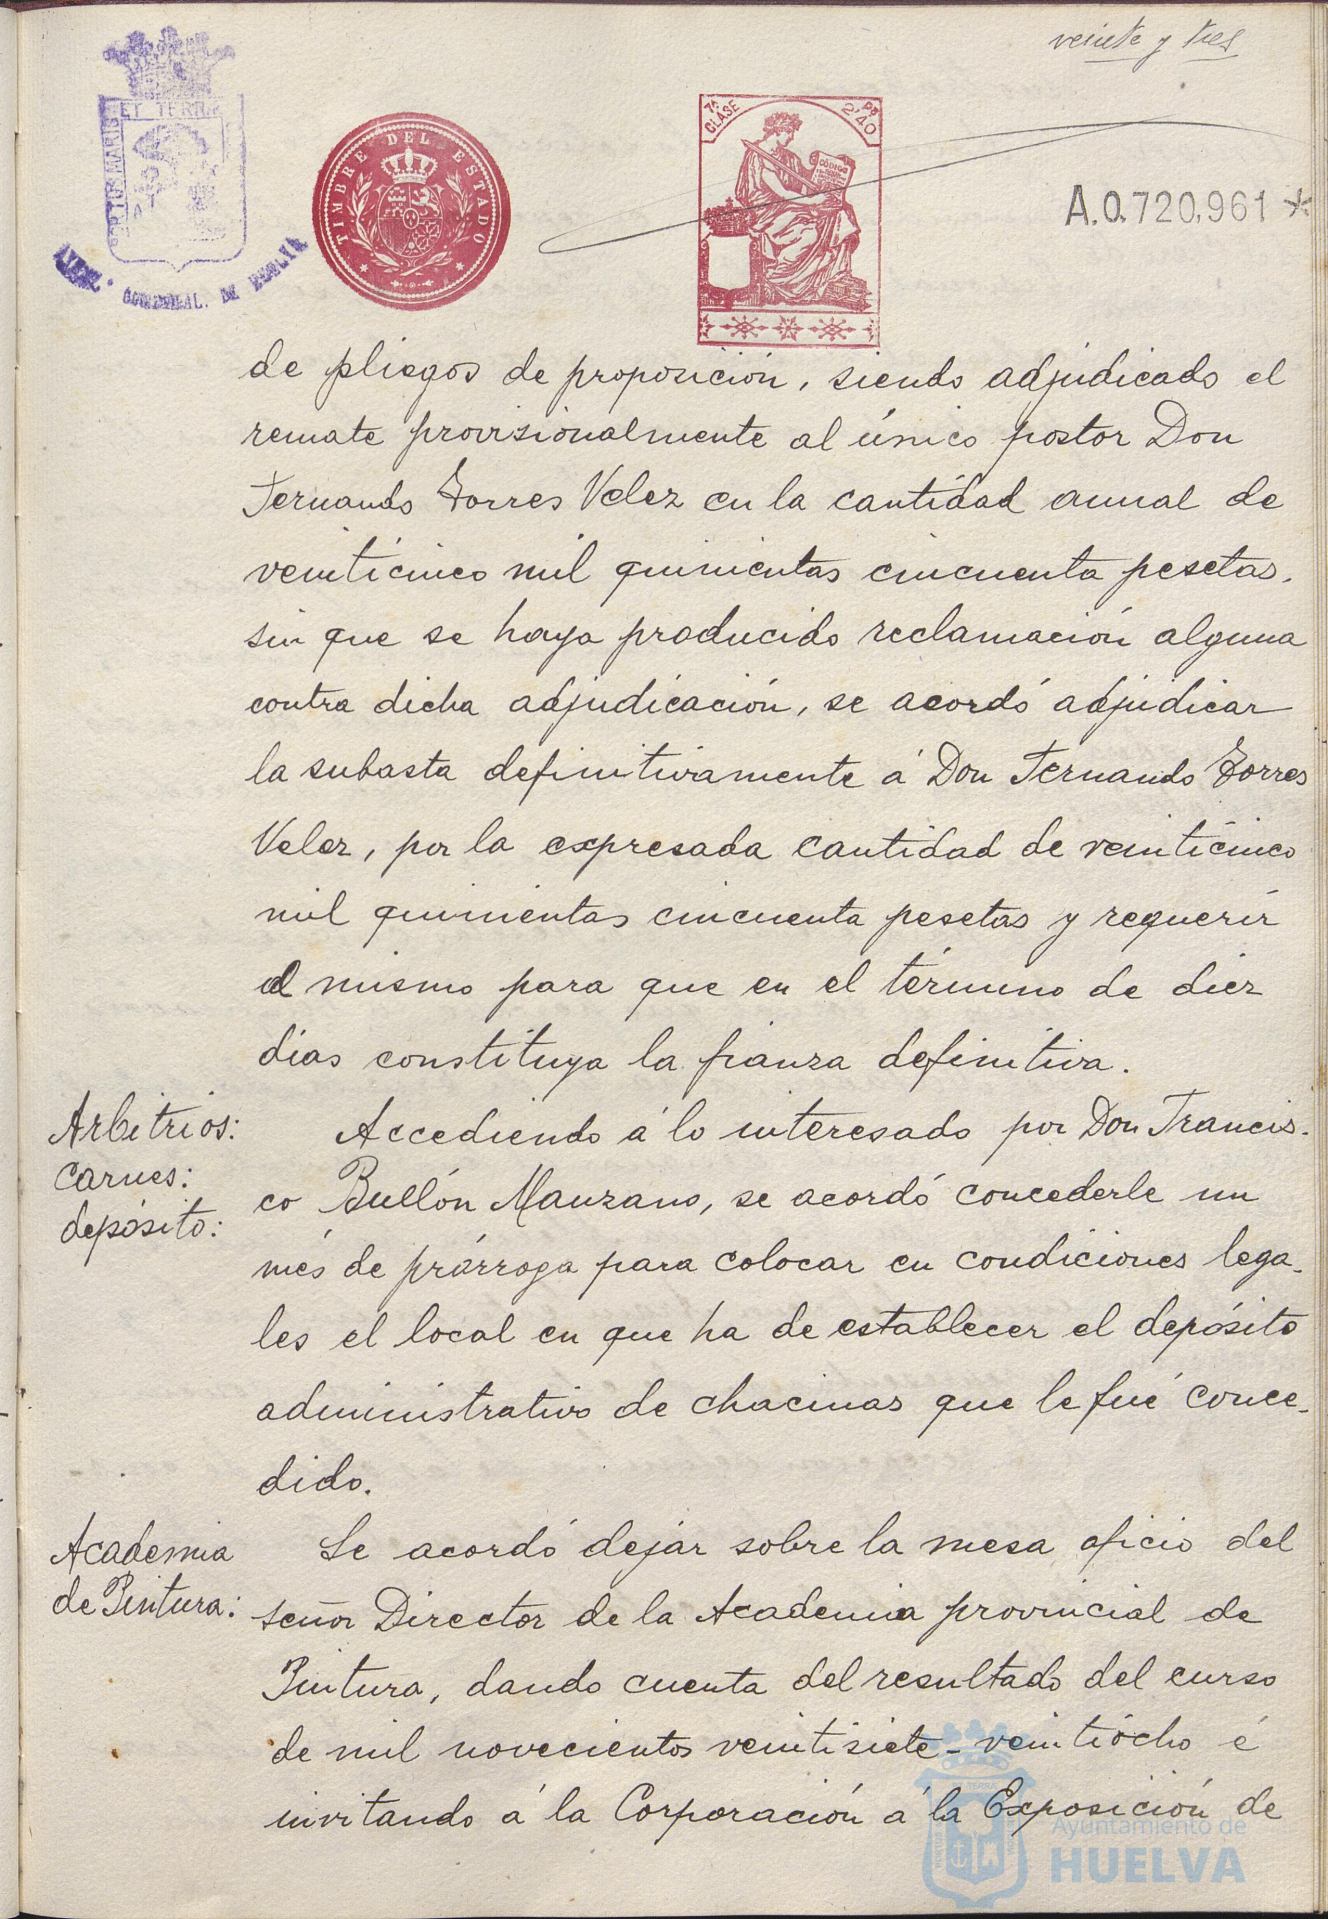 veinte y tres
ET TERRA
TIMBRE DEL ESTADO
7ª CLASE
2'40
CÓDIGO
A.0.720,961 *
de pliegos de proposición, siendo adjudicado el
remate provisionalmente al único postor Don
Fernando Torres Velez en la cantidad anual de
veinticinco mil quinientas cincuenta pesetas,
sin que se haya producido reclamación alguna
contra dicha adjudicación, se acordó adjudicar
la subasta definitivamente á Don Fernando Torres
Velez, por la expresada cantidad de veinticinco
mil quinientas cincuenta pesetas y requerir
al mismo para que en el término de diez
días constituya la fianza definitiva.
Arbitrios:
carnes:
depósito:
Accediendo á lo interesado por Don Francis-
co Bullón Manzano, se acordó concederle un
més de prórroga para colocar en condiciones lega-
les el local en que ha de establecer el depósito
administrativo de chacinas que le fué conce-
dido.
Academia
de Pintura:
Se acordó dejar sobre la mesa oficio del
señor Director de la Academia provincial de
Pintura, dando cuenta del resultado del curso
de mil novecientos veintisiete-veintiocho é
invitando á la Corporación á la Exposición de
Ayuntamiento de
HUELVA